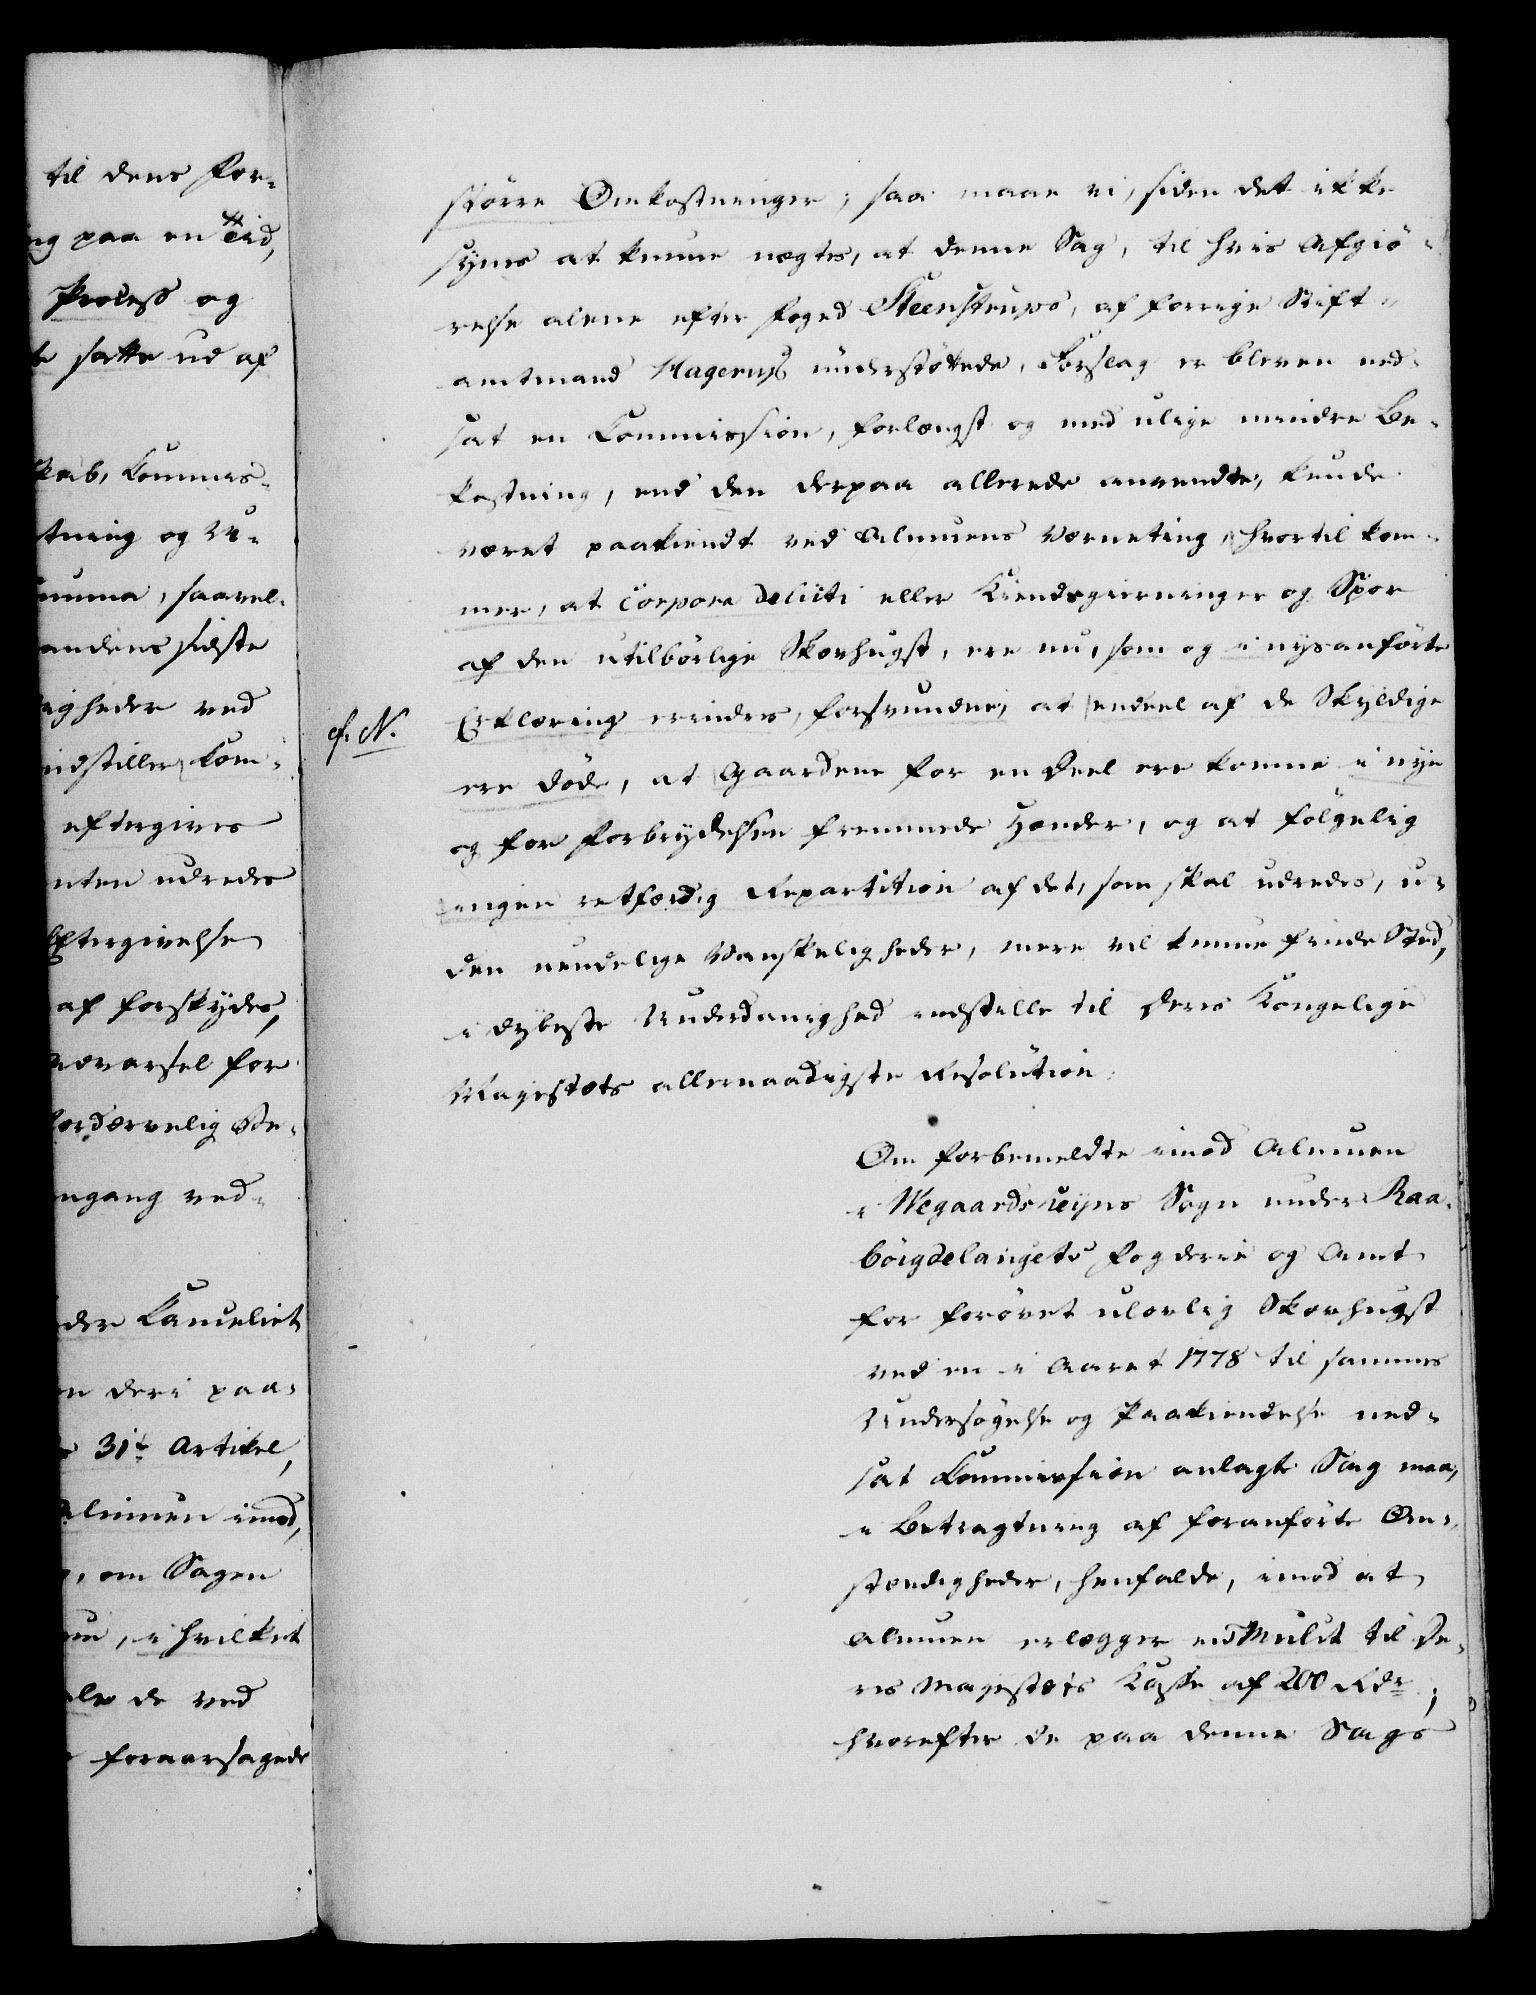 til dens for-
ng paa en Tid,
Process og
satte ud af
skab, Commis-
tning og U-
umma, saavel-
andens sidste
igheder ved
indstiller, kom-
eftergives
nten udredes
Eftergivelse
af forskydes,
advarsel for
fordærvelig De-
ngang ved-
der Cancelliet
en deri paa-
31te Artikel,
Almuen imod,
, om Sagen
, i hvilket
de ved
foraarsagede
större Omkostninger, saa maae vi, siden det ikke
synes at kunne nægtes, at denne Sag, til hvis Afgiö-
relse alene efter Foged Steenstrups, af forrige Stift-
amtmand Hagerups understöttede, Forslag er bleven ned-
sat en Commission, forlængst og med ulige mindre Be-
kostning, end den derpaa allerede anvendte, kunde
været paakiendt ved Almuens Værneting, hvortil kom-
mer, at corpora delicti eller Kiendsgierninger og Spor
af den utilbörlige Skovhugst, ere nu, som og i nysanförte
cf. N.
Erklæring erindres, forsvundne, at endeel af de Skyldige
ere döde, at Gaardene for en Deel ere komne i nye
og for Forbrydelsen fremmede Hænder, og at fölgelig
ingen retfærdig Repartition af det, som skal udredes, u-
den uendelige Vanskeligheder, mere vil kunne finde Sted,
i dybeste Underdanighed indstille til Deres Kongelige
Majestæts allernaadigste Resolution:
Om forbemeldte imod Almuen
i Wegaardsheyens Sogn under Raa-
böigdelaugets Fogderie og Amt
for forövet ulovlig Skovhugst
ved en i Aaret 1778 til sammes
Undersögelse og Paakiendelse ned-
sat Commission anlagte Sag maa,
i Betragtning af foranförte Om-
stændigheder, henfalde, imod at
Almuen erlægger en Mulct til De-
res Majestæts Kasse af 200 Rdr,
hvorefter de paa denne Sags